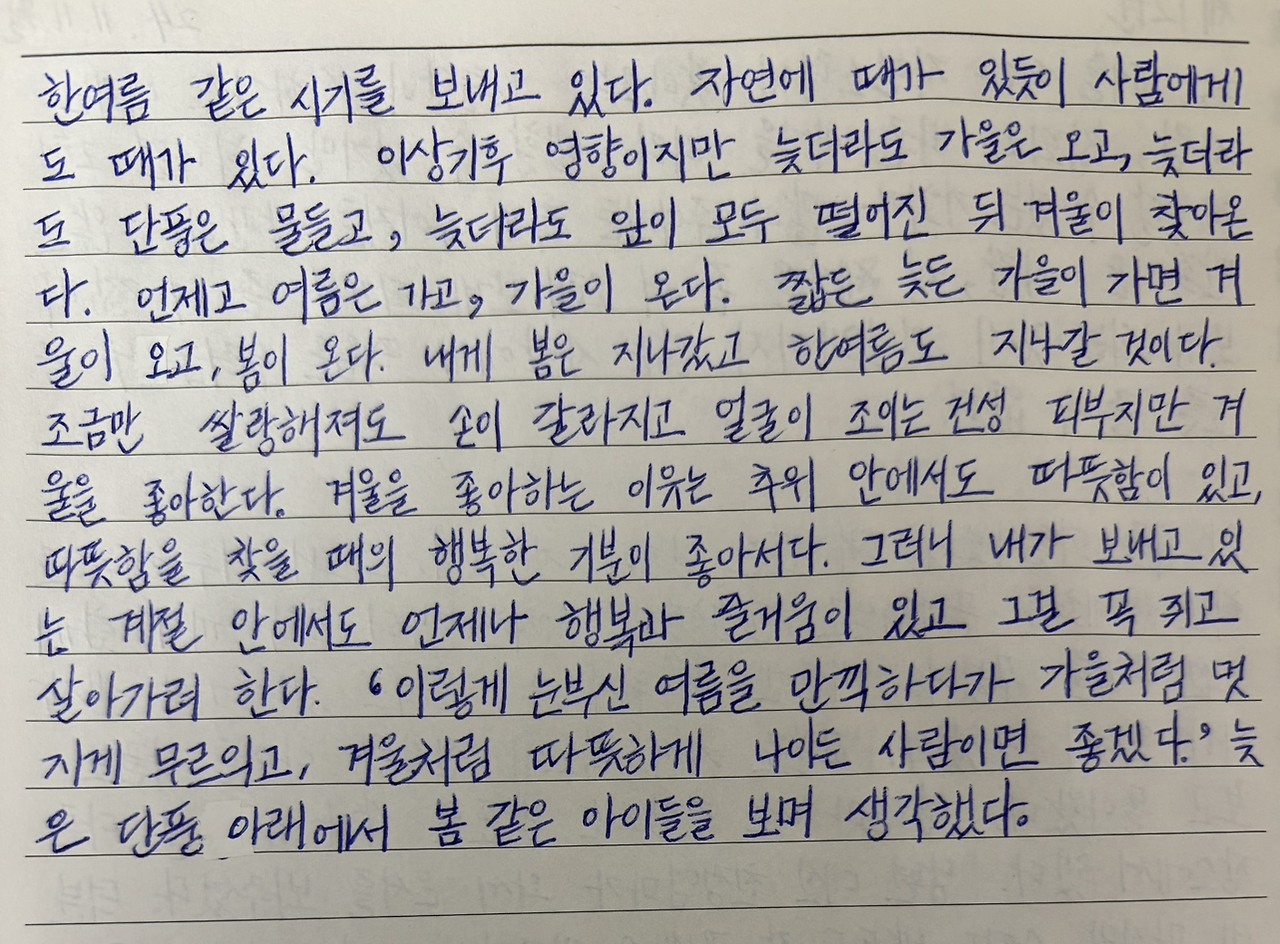 한여름 같은 시기를 보내고 있다. 자연에 때가 있듯이 사람에게
도 때가 있다. 이상기후 영향이지만 늦더라도 가을은 오고, 늦더라
도 단풍은 물들고, 늦더라도 잎이 모두 떨어진 뒤 겨울이 찾아온
다. 언제고 여름은 가고, 가을이 온다. 짧든 늦든 가을이 가면 겨
울이 오고, 봄이 온다. 내게 봄은 지나갔고 한여름도 지나갈 것이다.
조금만 쌀랑해져도 손이 갈라지고 얼굴이 조이는 건성 피부지만 겨
울을 좋아한다. 겨울을 좋아하는 이유는 추위 안에서도 따뜻함이 있고,
따뜻함을 찾을 때의 행복한 기분이 좋아서다. 그러니 내가 보내고 있
는 계절 안에서도 언제나 행복과 즐거움이 있고 그걸 꼭 쥐고
살아가려 한다. ‘이렇게 눈부신 여름을 만끽하다가 가을처럼 멋
지게 무르익고, 겨울처럼 따뜻하게 나이든 사람이면 좋겠다.’ 늦
은 단풍 아래에서 봄 같은 아이들을 보며 생각했다.